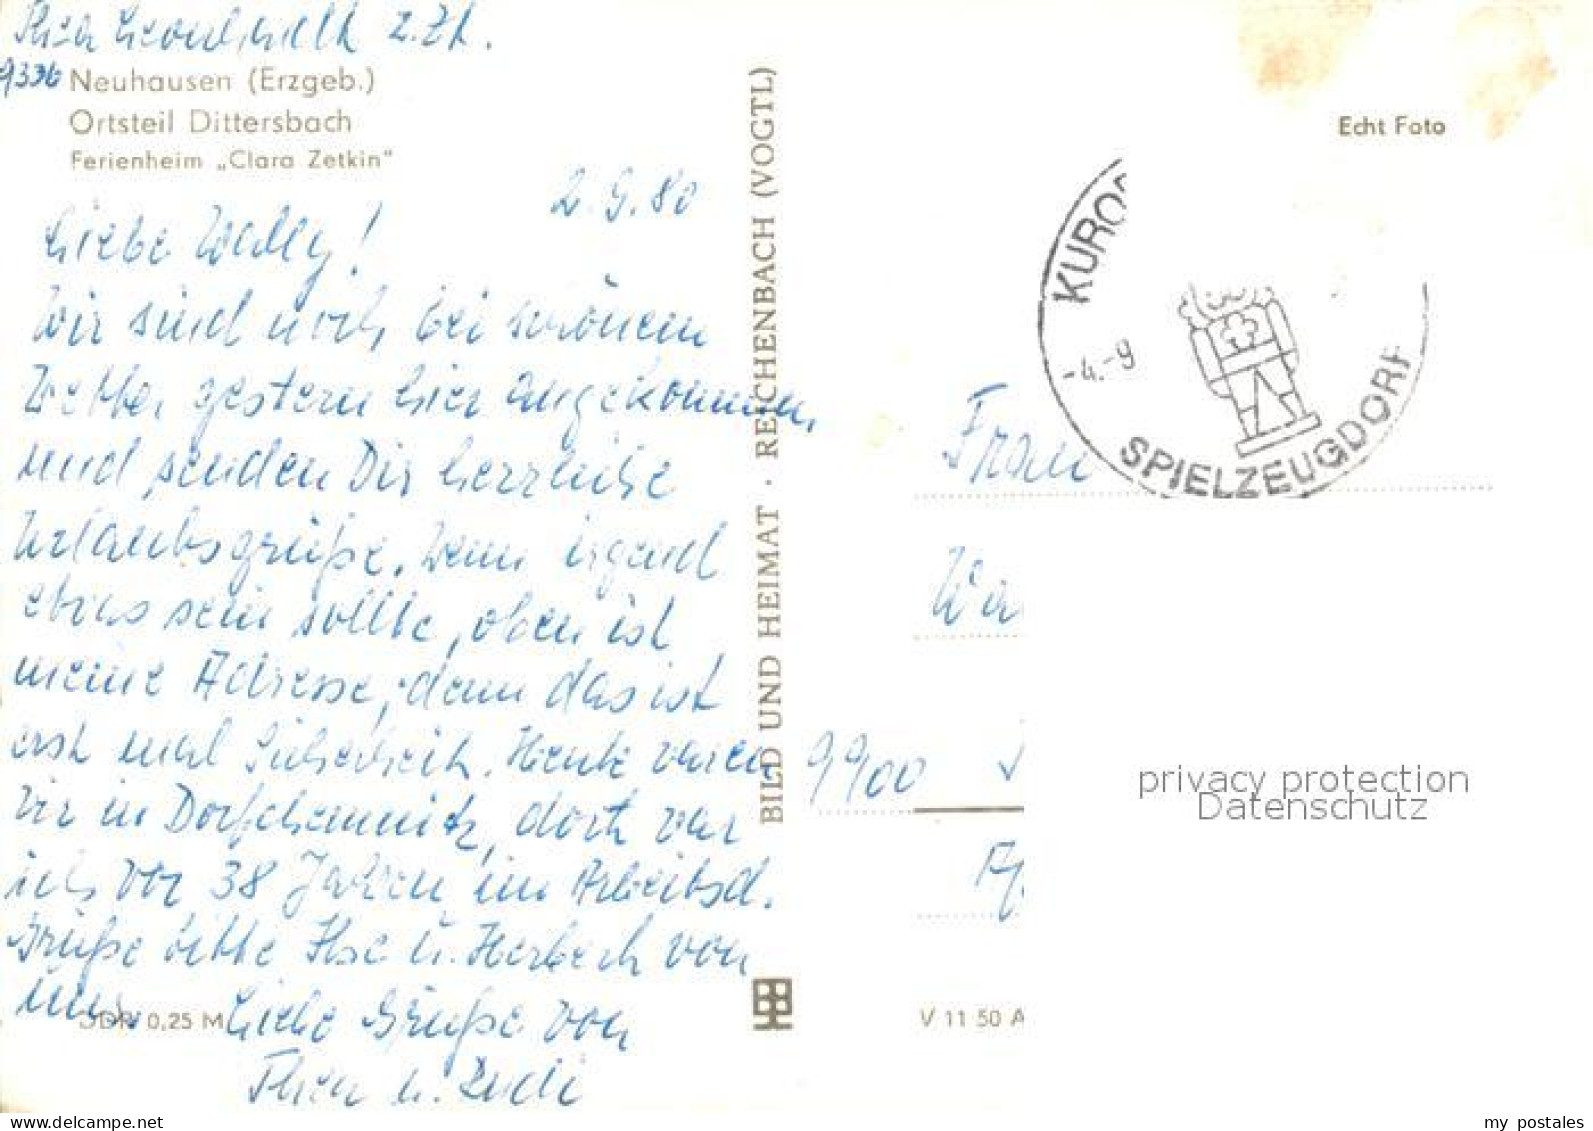 z.Zt.
9336 Neuhausen (Erzgeb.)
Ortsteil Dittersbach
Ferienheim „Clara Zetkin"
2.9.80
Liebe Wally!
Wir sind noch bei schönem
Wetter gestern hier angekommen
und senden Dir herzliche
Urlaubsgrüße. Wenn irgend
etwas sein sollte, oben ist
meine Adresse, denn das ist
erst mal Sicherheit. Heute waren
wir in Dorfchemnitz, dort war
ich vor 38 Jahren im Arbeitsd.
Grüße bitte Ilse u. Herbert von
uns. Liebe Grüße von
Thea u. Rudi
DDR 0,25 M
BILD UND HEIMAT · REICHENBACH (VOGTL)
Echt Foto
KURO
-4.-9
SPIELZEUGDORF
Frau
Wa
9900
V 11 50 A
privacy protection
Datenschutz
my postales